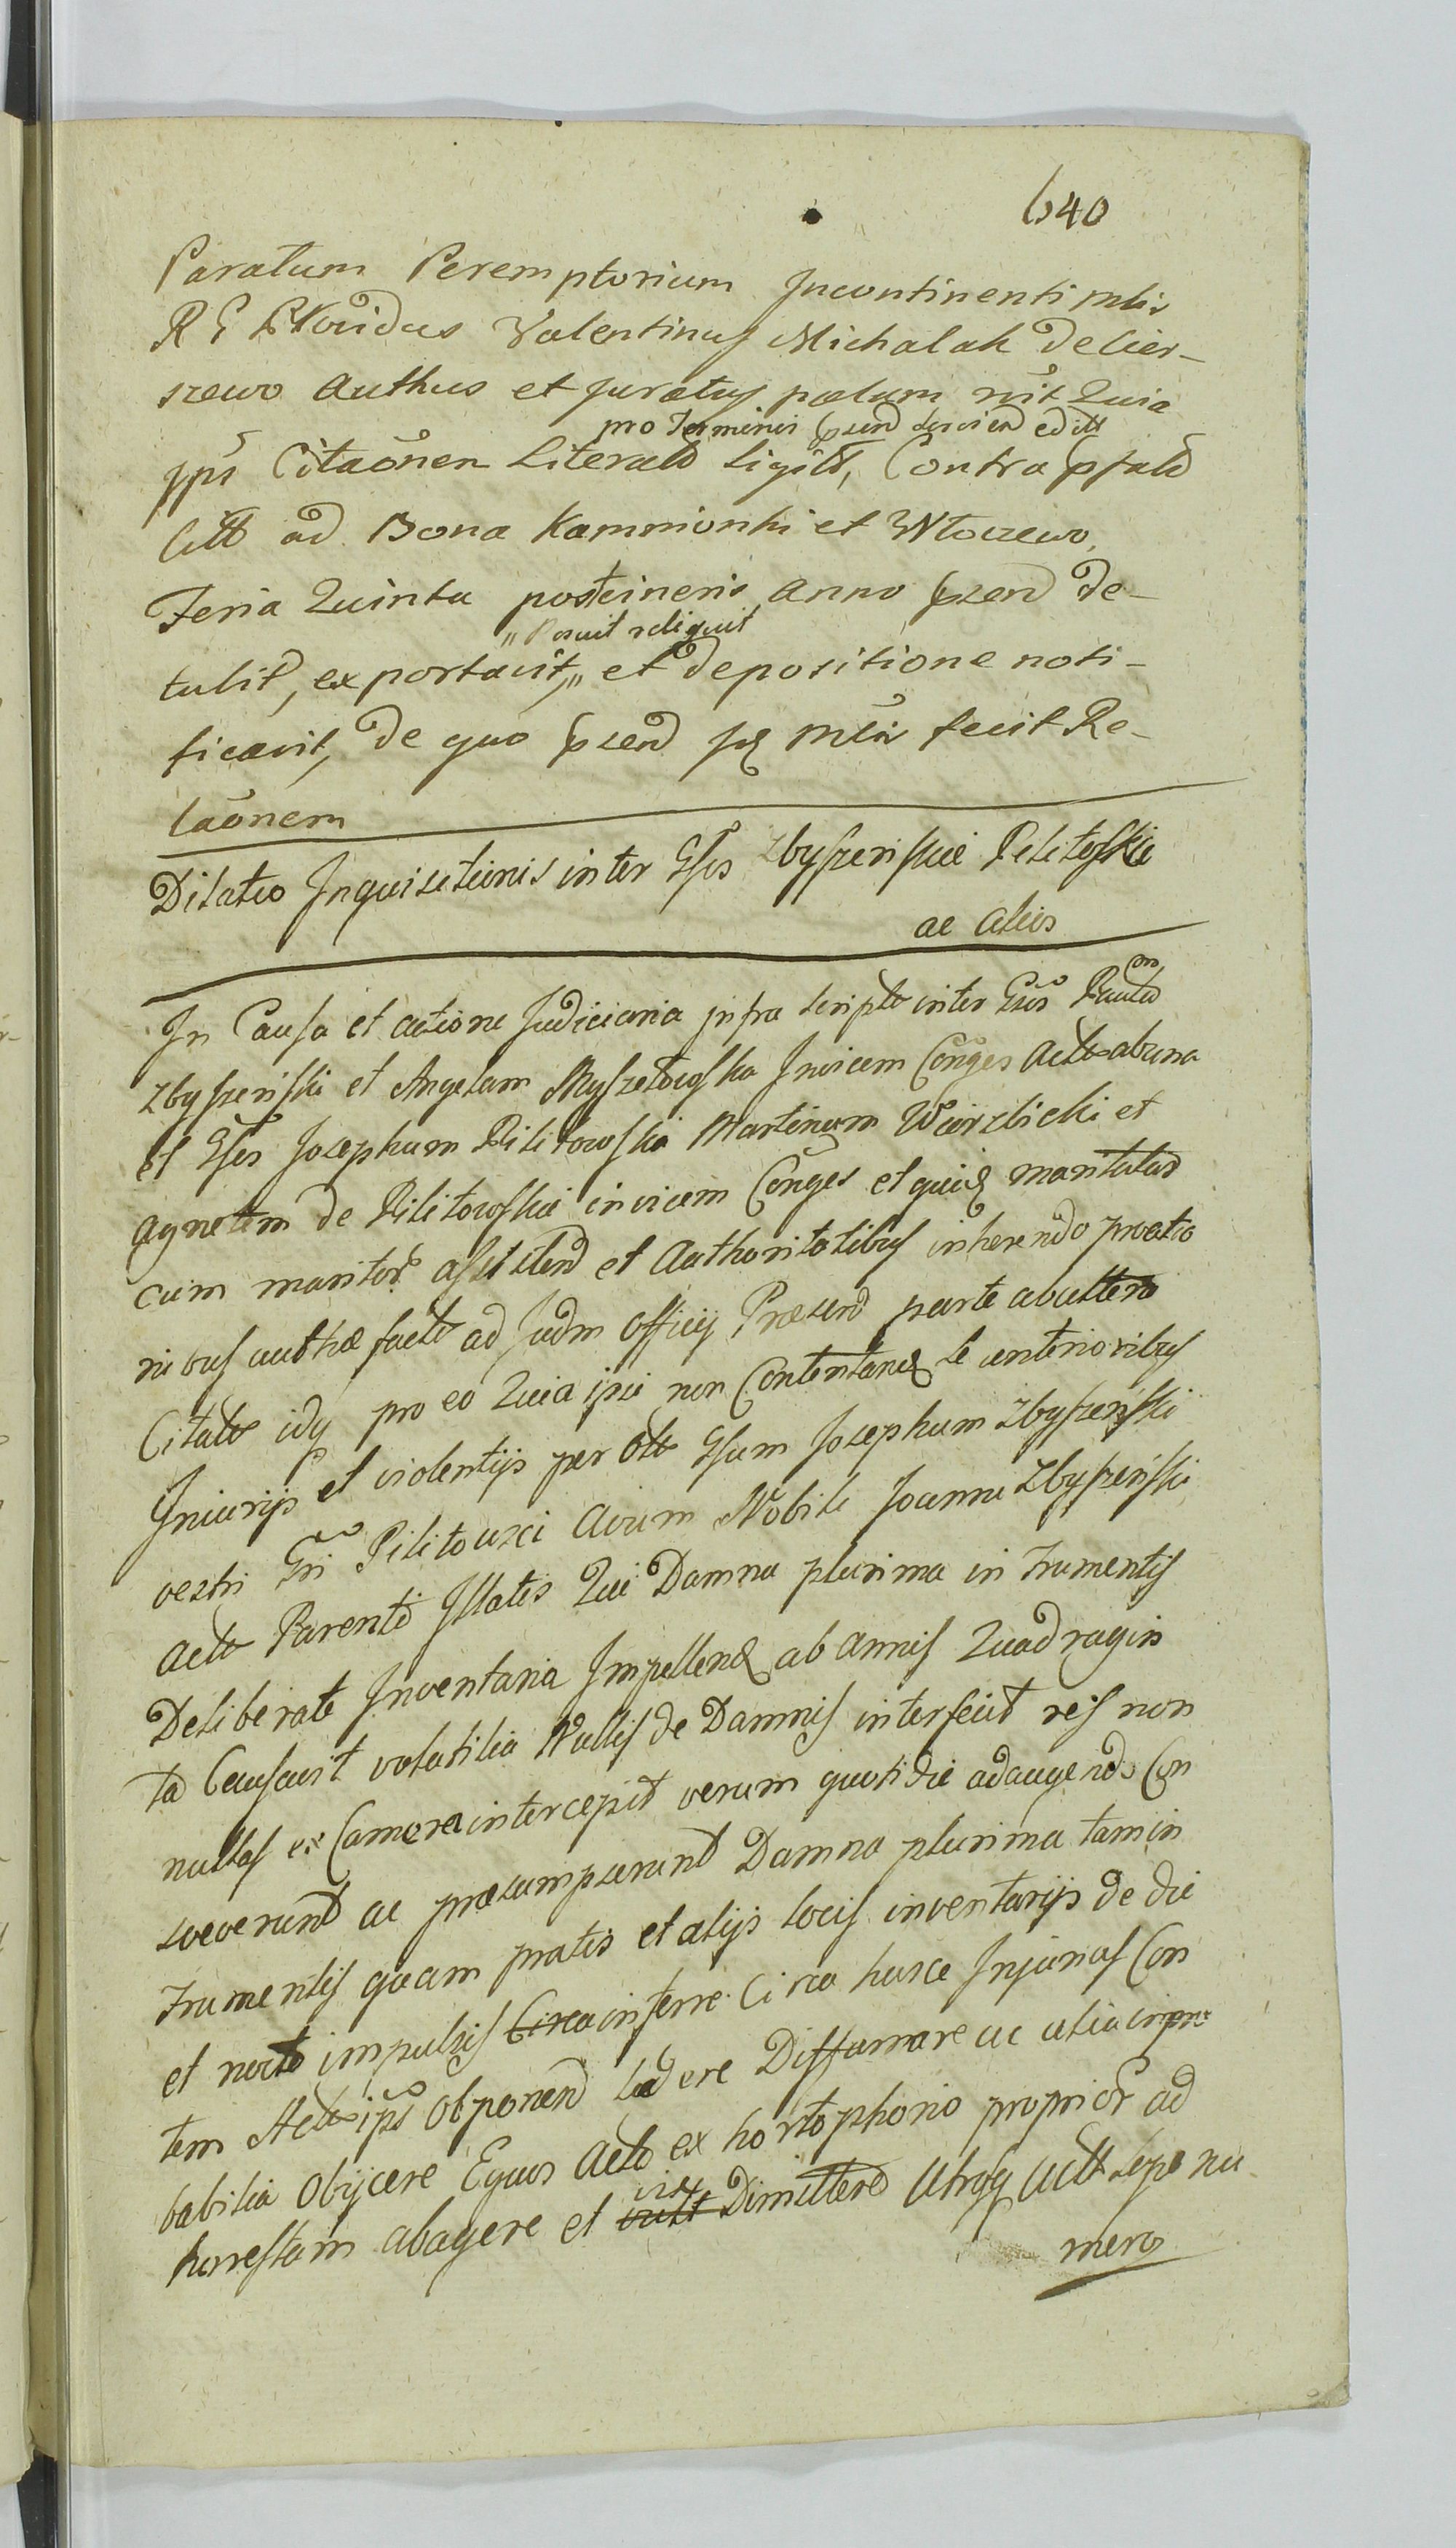 640
Paratum Peremptorium Incontinenti mlis
R G Providus Valentinus Michalak de Cier-
szewo Authus et Juratus palam rũt Quia
pro Terminis psend serviend editt
ips Citaõnen Literald Sigill, Contra psald
litt ad Bona Kamnionki et Włoczewo
Feria Quinta post cineris anno psend de-
"Posuit reliquit
tulit, exportavit," et depositione noti-
ficavit, de quo psend se mlr fecit Re-
laõnem
Dilatio Inquisitionis inter Gsos Zbyszenskie Pilitoskie
ac alios
In Causa et actione Judiciaria infra script inter Gsos Paulum
Zbyszenski et Angelam Myszetowska Invicem Conges Actt ab una
et Gsos Josephum Pilitowski Martinum Wierzbicki et
Agnetem de Pilitowskie invicem Conges et quidq maritatas
cum maritor assistend et Authoritatibus inherendo proctio
nibus auctha facto ad Judm Officij Præsend parte ab altera
Citatt idq pro eo Quia ipsi non Contentand se anterioribus
Iniurijs et violentijs per Ott Gsum Josephum Zbyszenski
vestri Gsi Pilitowsci Avum Nobili Joanni Zbyszenski
Actt Parenti Illatis Qui Damna plurima in Frumentis
Deliberate Inventaria Impellend ab annis Quadragin
ta Causavit volatilia Nullis de Damnis interfecit res non
nullas ex Camera intercepit verum quotidie adaugendo Con
sveverunt ac præsumpserunt Damna plurima tam in
Frumentis quam pratis et alijs locis inventarijs de die
et nocte impulsis Circa inferre Circa husce Injurias Con
tem Actt ips Obponend Lædere Diffamare ac alia impro
babilia Objicere Equos Actt ex hortophorio proprior ad
honestam abagere et Dimittere Utrq Actt sepe nu
mero